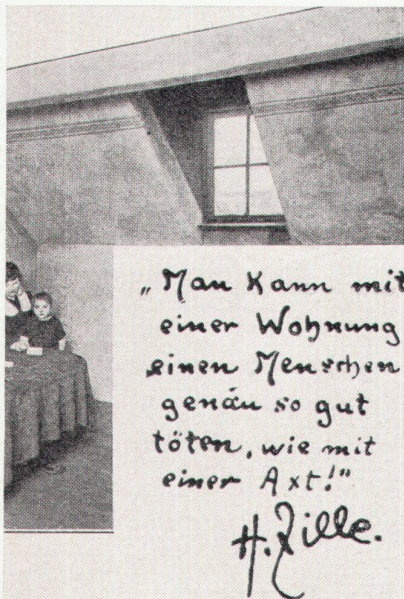 „Man kann mit
einer Wohnung
einen Menschen
genau so gut
töten, wie mit
einer Axt!"
H. Zille.